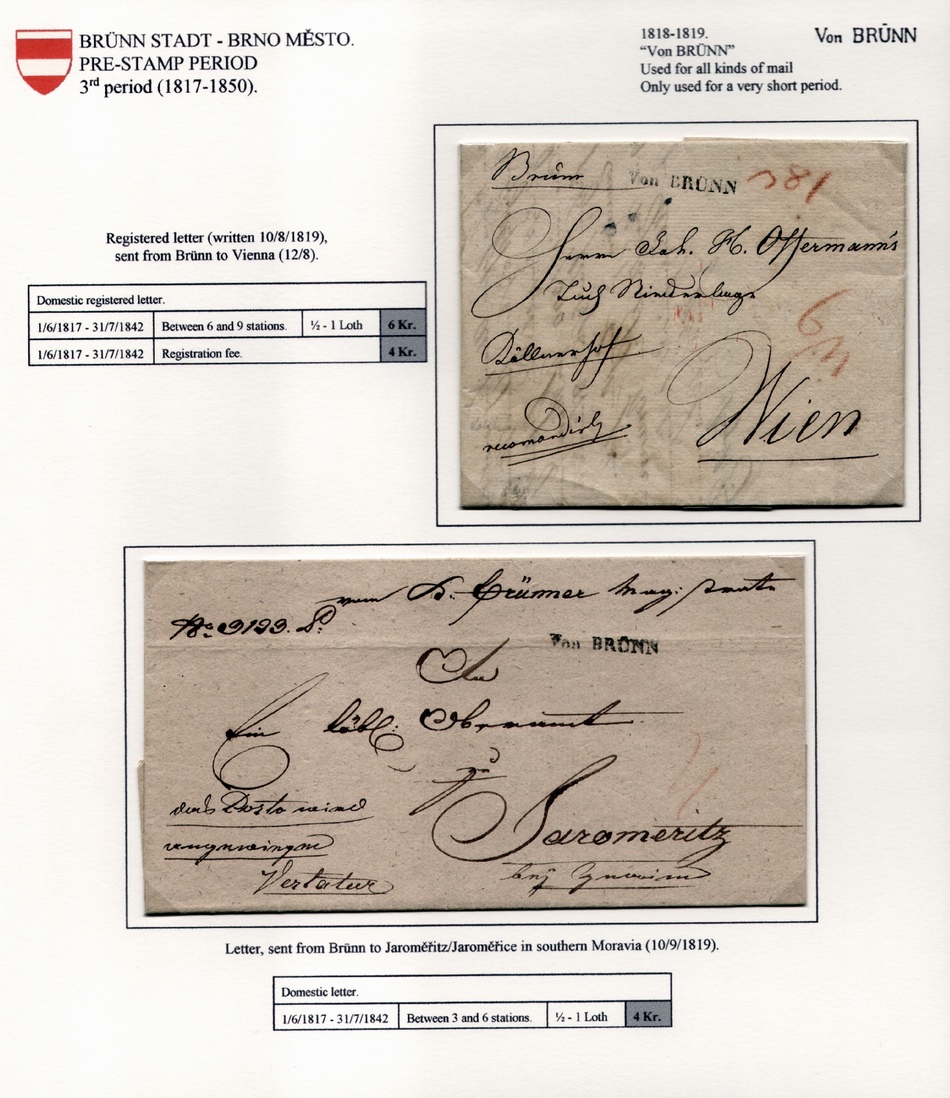 BRÜNN STADT - BRNO MĚSTO.
PRE-STAMP PERIOD
3rd period (1817-1850).
1818-1819.
“Von BRÜNN”
Used for all kinds of mail
Only used for a very short period.
Von BRÜNN
Registered letter (written 10/8/1819),
sent from Brünn to Vienna (12/8).
Domestic registered letter.
1/6/1817 - 31/7/1842 Between 6 and 9 stations. ½ - 1 Loth 6 Kr.
1/6/1817 - 31/7/1842 Registration fee. 4 Kr.
Brünn Von BRÜNN 381
Herrn Joh. H. Offermann's
Tuch Niederlage
6
Köllnerhof
Wien
recomandirt
vom Brünner Magistrate
No. 3193. Von BRÜNN
An
Ein löbl: Oberamt
zu
Jaromeritz
bey Znaim
Letter, sent from Brünn to Jaroměřitz/Jaroměřice in southern Moravia (10/9/1819).
Domestic letter.
1/6/1817 - 31/7/1842 Between 3 and 6 stations. ½ - 1 Loth 4 Kr.